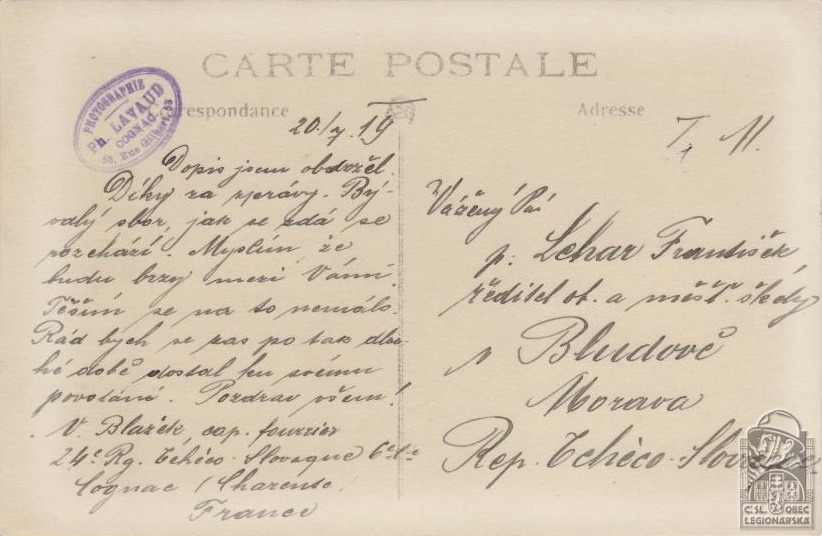 CARTE POSTALE
PHOTOGRAPHIE
Ph. LAVAUD
COGNAC
55, Rue
Correspondance
Adresse
20./7. 19
Dopis jsem obdržel.
Díky za zprávy. Bý-
valý sbor, jak se zdá se
rozchází. Myslím, že
budu brzy mezi Vámi.
Těším se na to nemálo.
Rád bych se zas po tak dlou-
hé době dostal ku svému
povolání. Pozdrav všem!
V. Blažek, cap. fourrier
24e Rg. Tchéco-Slovaque 6e
Cognac / Charente.
France
Vážený Pán
p. Lehar František
ředitel ob. a měšť. školy
v Bludově
Morava
Rep. Tchéco-Slovaque
ČSL. OBEC
LEGIONÁŘSKÁ